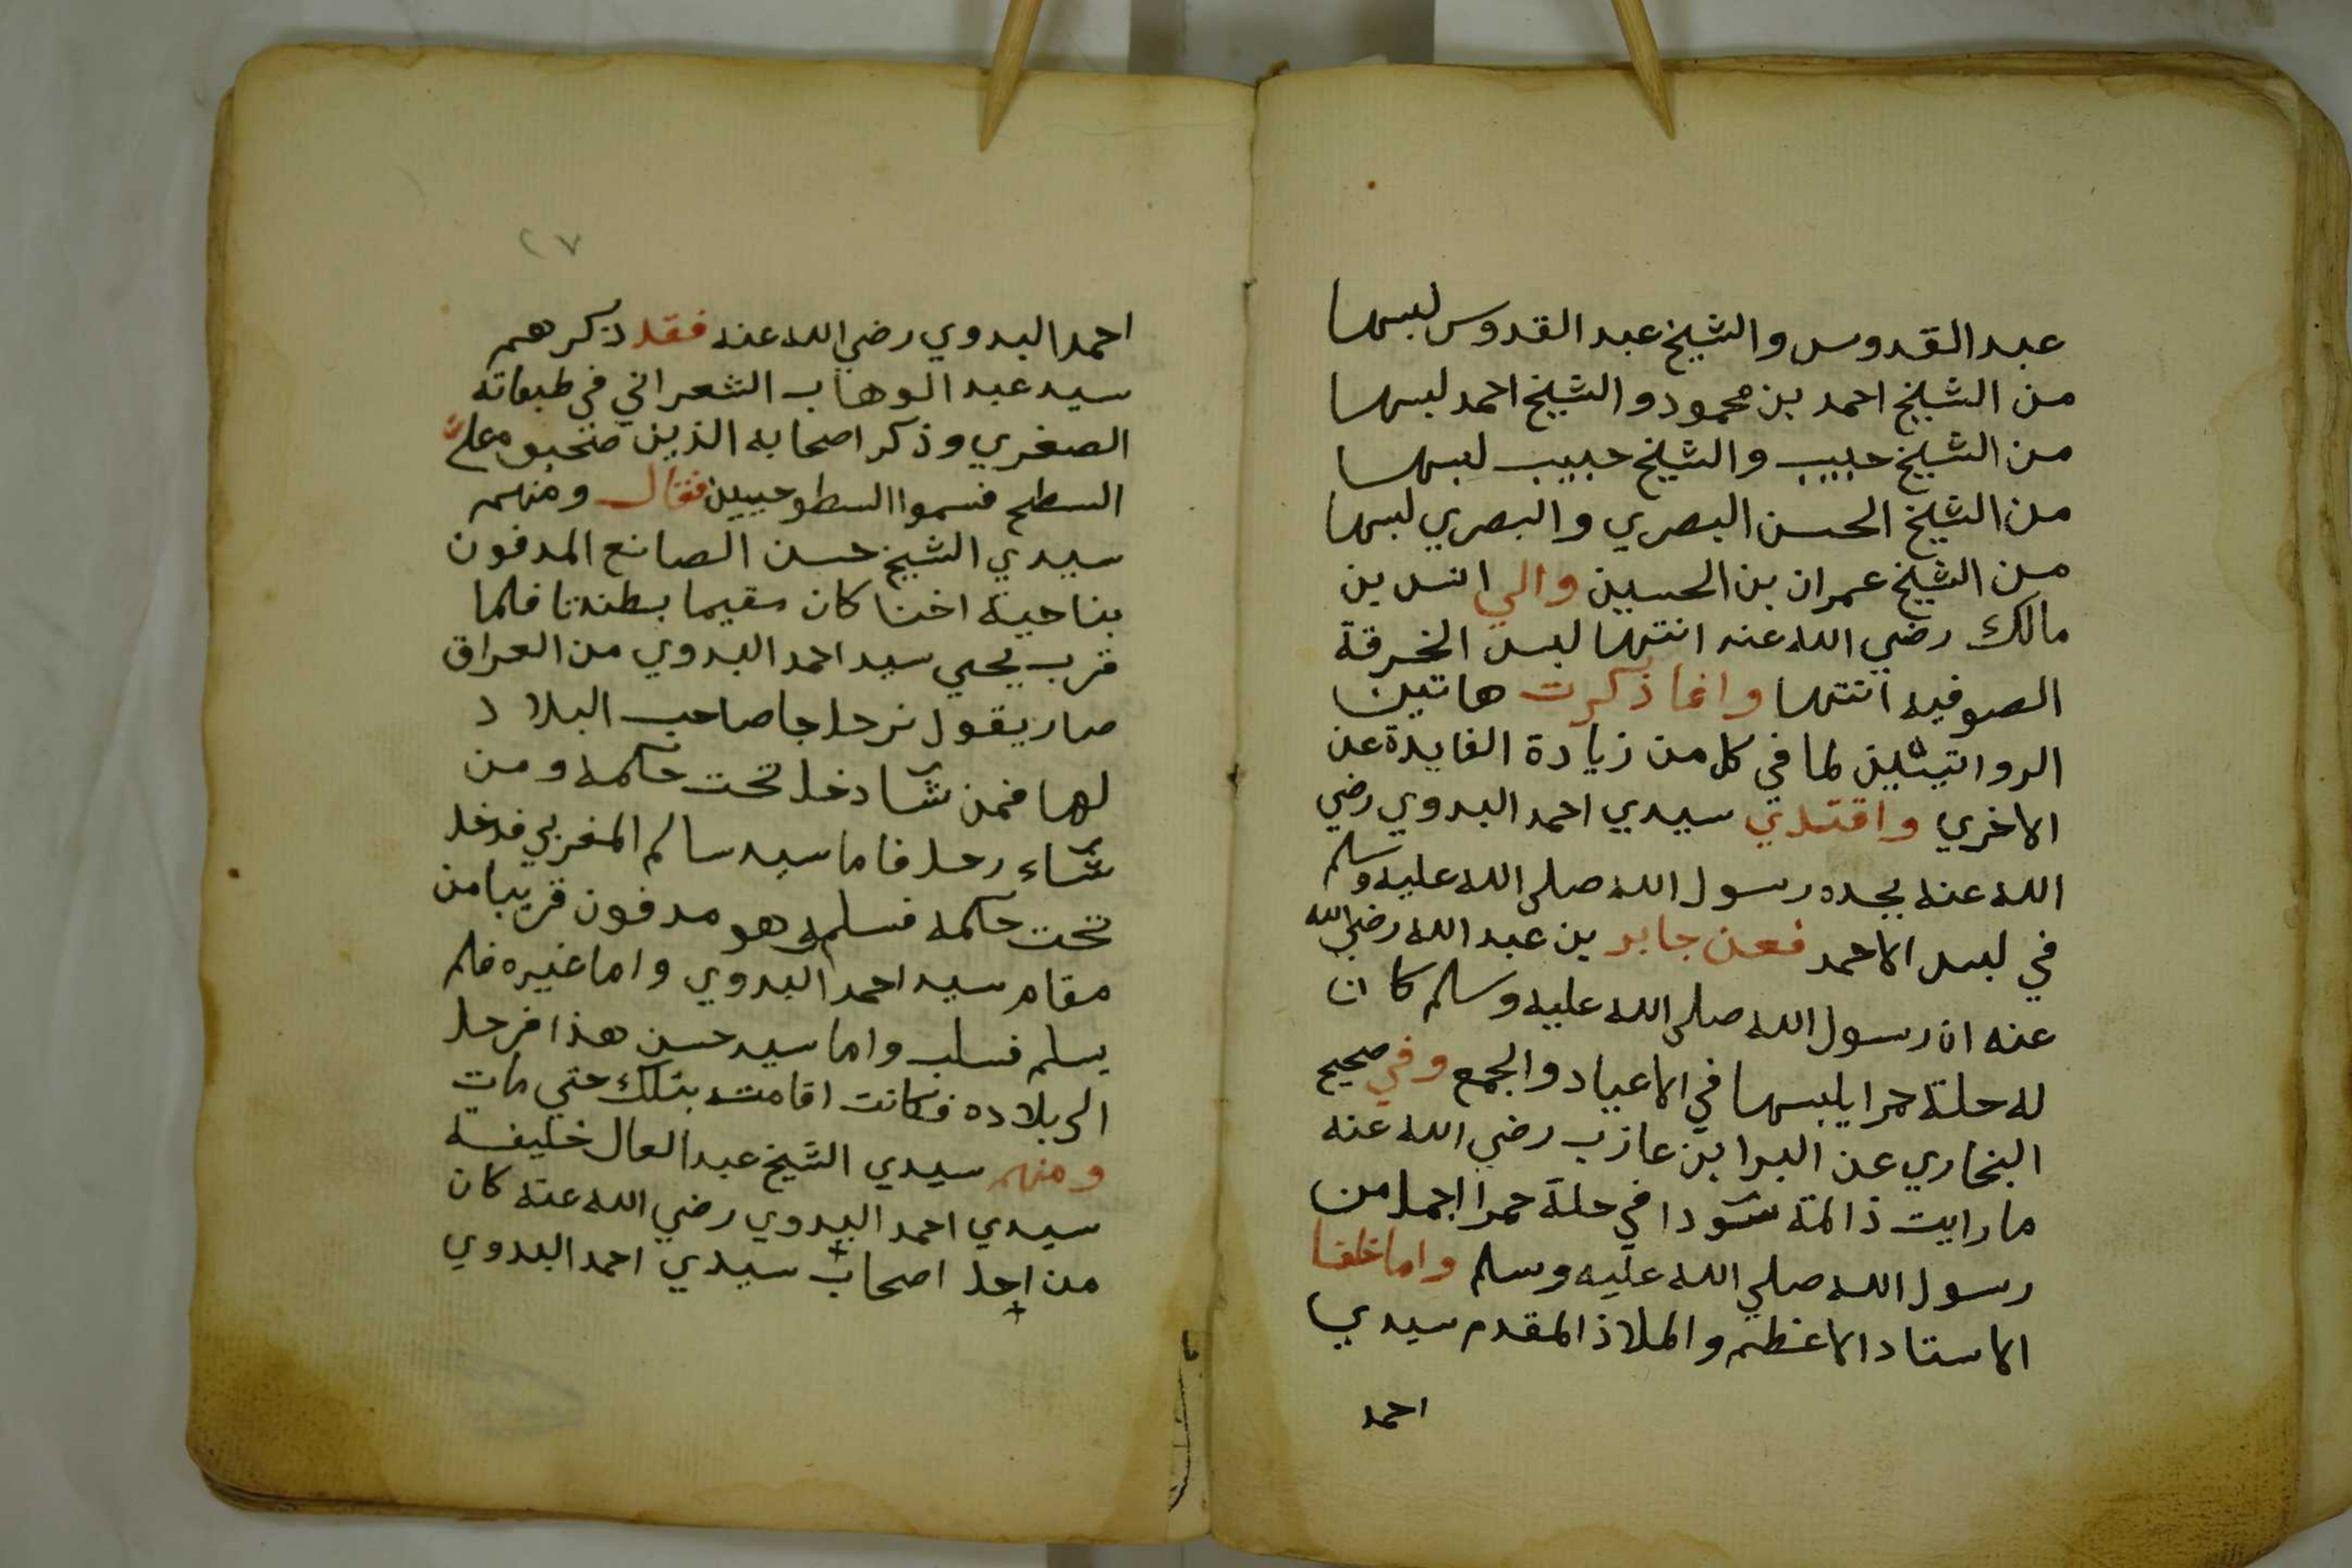 عبد القدوس والشيخ عبد القدوس لبسها
من الشيخ احمد بن محمود والشيخ احمد لبسها
من الشيخ حبيب والشيخ حبيب لبسها
من الشيخ الحسن البصري والبصري لبسها
من الشيخ عمران بن الحسين والي انس بن
مالك رضي الله عنه انتها لبس الخرقة
الصوفيه انتها وانما ذكرت هاتين
الرواتيتين لما في كل من زيادة الفايدة عن
الاخري واقتدي سيدي احمد البدوي رضي
الله عنه بجده رسول الله صلى الله عليه وسلم
في لبس الاحمد فعن جابر بن عبد الله رضي الله
عنه ان رسول الله صلى الله عليه وسلم كان
له حلة حمرا يلبسها في الاعياد والجمع وفي صحيح
البخاري عن البرا بن عازب رضي الله عنه
ما رايت ذا لمة سودا في حلة حمرا اجمل من
رسول الله صلي الله عليه وسلم واما خلفا
الاستاد الاعظم والملاذ المقدم سيدي
احمد
٢٧
احمد البدوي رضي الله عنه فقد ذكرهم
سيد عبد الوهاب الشعراني في طبقاته
الصغري وذكر اصحابه الذين علي
السطح فسموا السطوحيين فقال ومنهم
سيدي الشيخ حسن الصانع المدفون
بناحية اخنا كان مقيما بطندتا فلما
قرب يجي سيد احمد البدوي من العراق
صار يقول نرحل جا صاحب البلاد
لها فمن شا دخل تحت حكمه ومن
شاء رحل فاما سيد سالم المغربي فدخل
تحت حكمه فسلم وهو مدفون قريبا من
مقام سيد احمد البدوي واما غيره فلم
يسلم فسلب واما سيد حسن هذا فرحل
الي بلاده فكانت اقامته بتلك حتي مات
ومنهم سيدي الشيخ عبد العال خليفة
سيدي احمد البدوي رضي الله عنه كان
من اجل اصحاب سيدي احمد البدوي